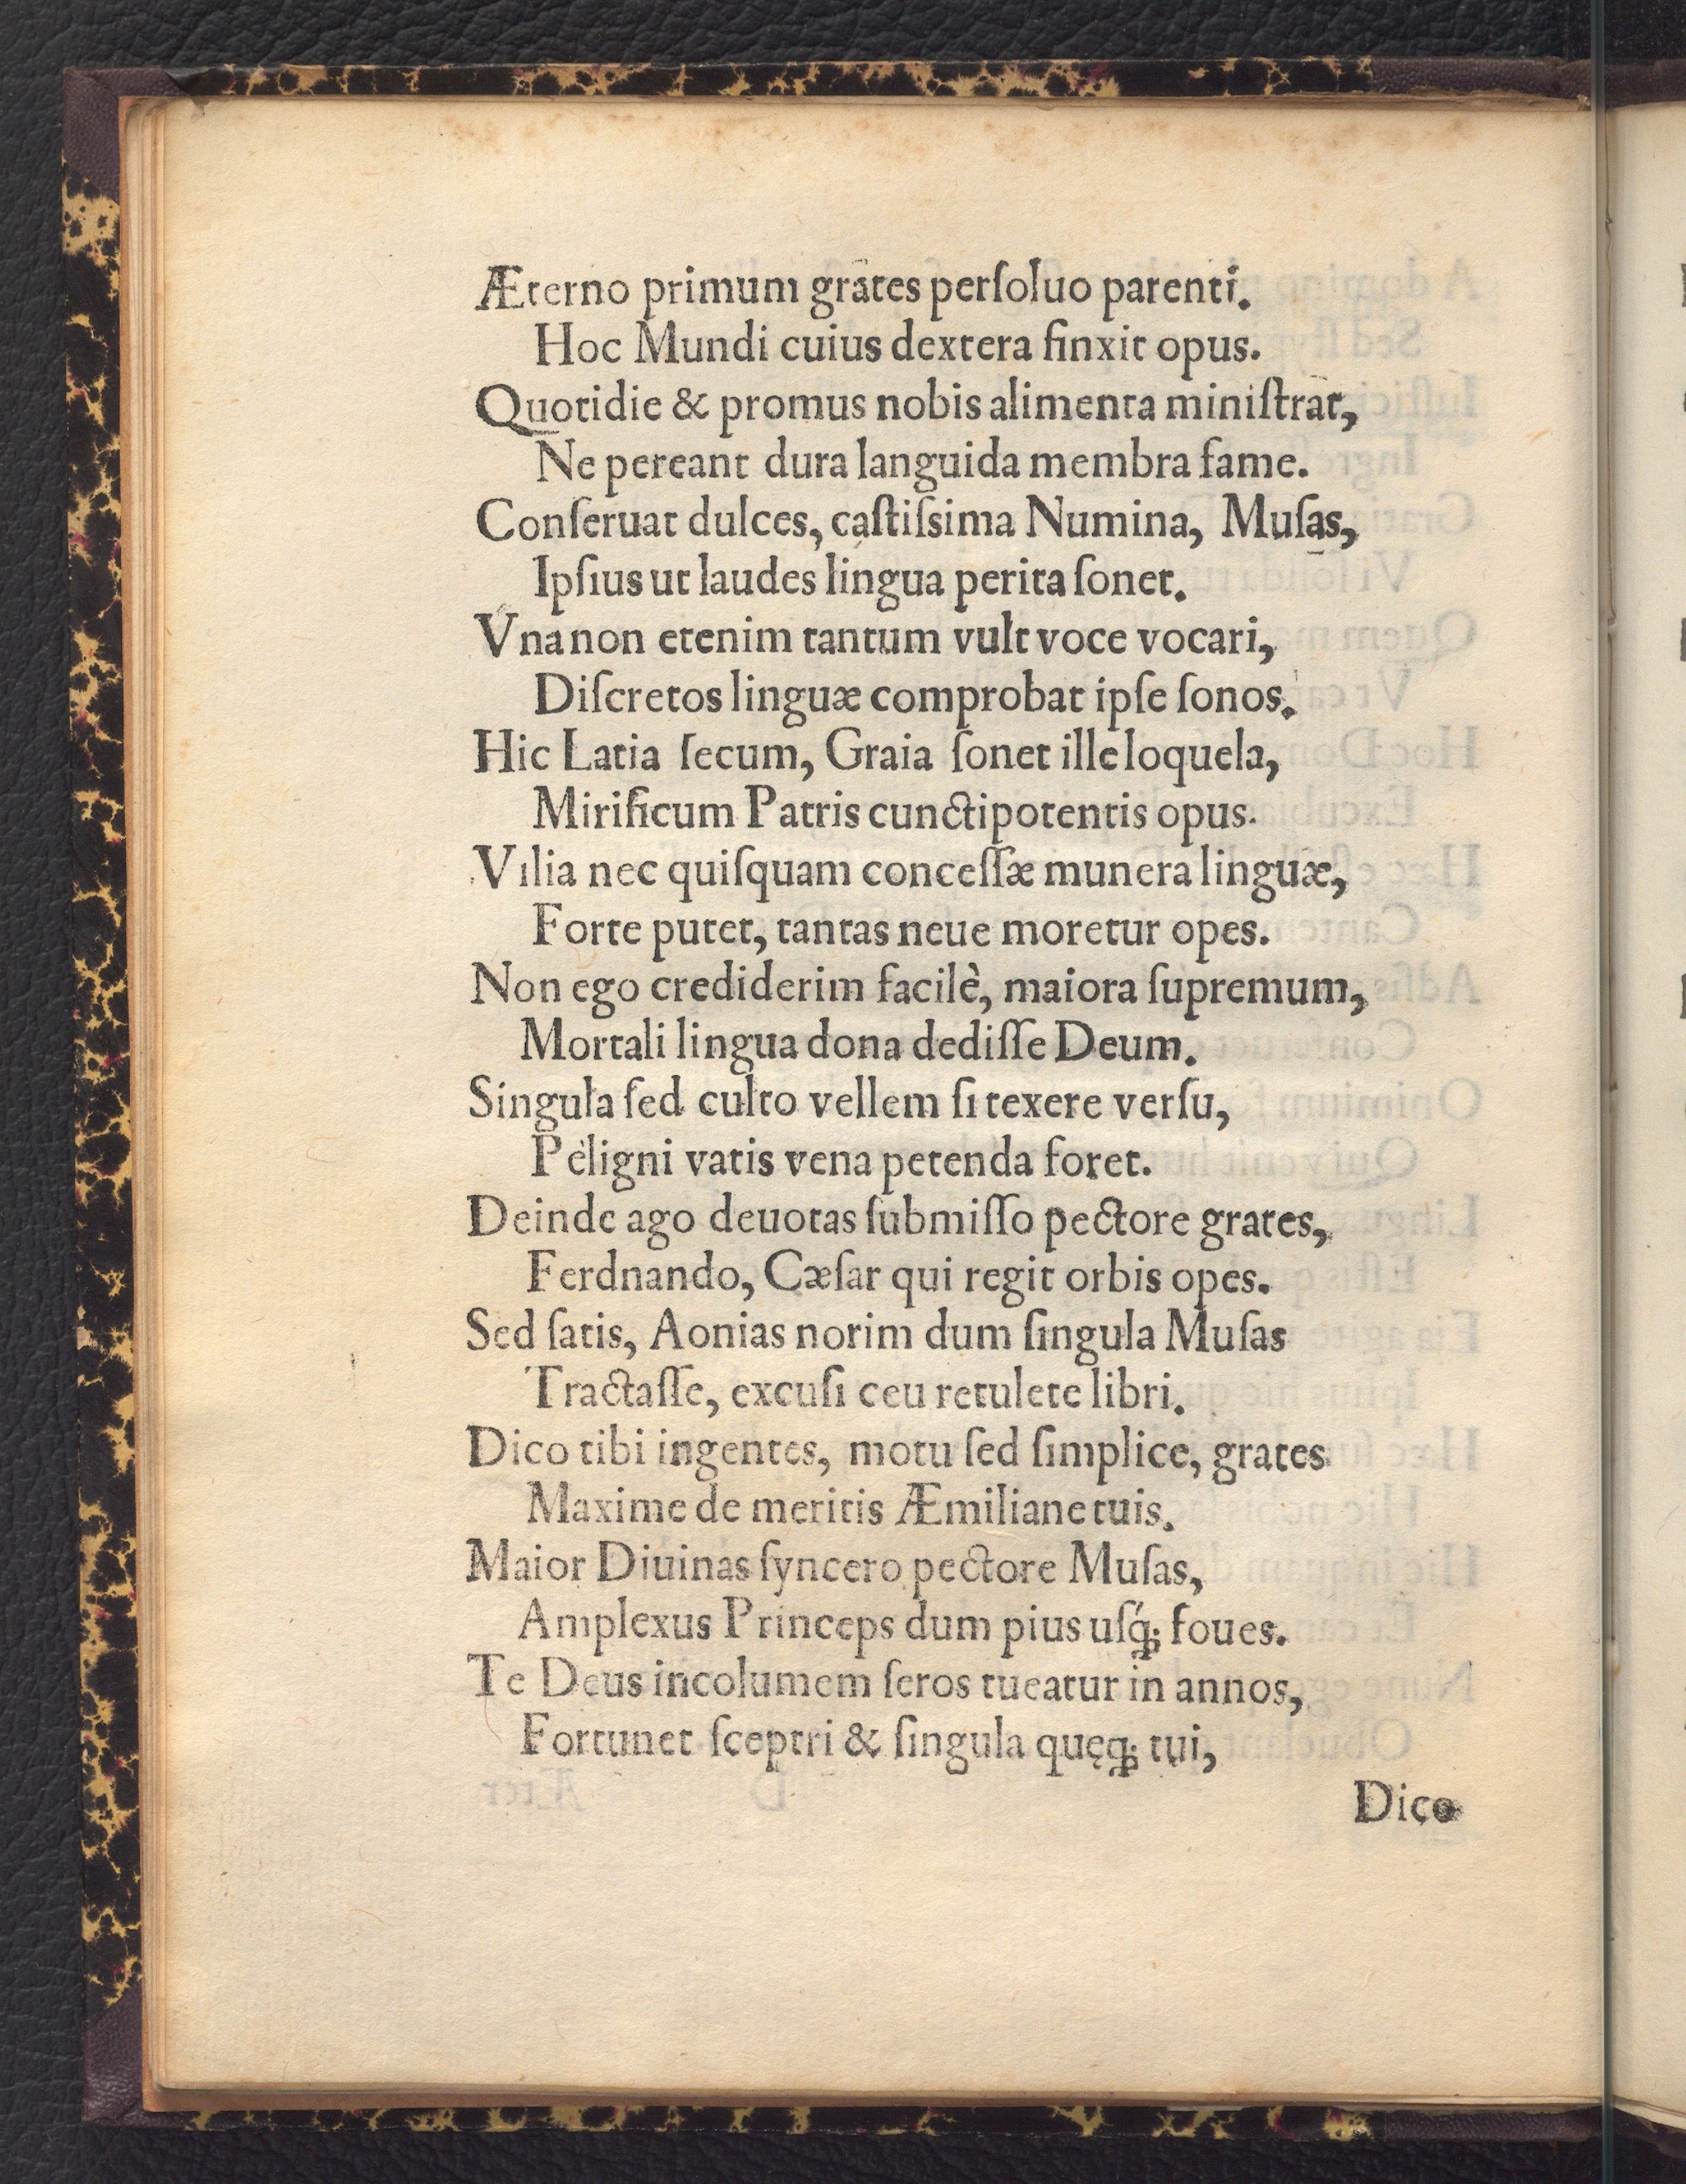 Æterno primum grates perſoluo parenti.
Hoc Mundi cuius dextera finxit opus.
Quotidie & promus nobis alimenta miniſtrat,
Ne pereant dura languida membra fame.
Conſeruat dulces, caſtiſsima Numina, Muſas,
Ipſius ut laudes lingua perita ſonet.
Vna non etenim tantum vult voce vocari,
Diſcretos linguæ comprobat ipſe ſonos.
Hic Latia ſecum, Graia ſonet ille loquela,
Mirificum Patris cunctipotentis opus.
Vilia nec quiſquam conceſſæ munera linguæ,
Forte putet, tantas neue moretur opes.
Non ego crediderim facilè, maiora ſupremum,
Mortali lingua dona dediſſe Deum.
Singula ſed culto vellem ſi texere verſu,
Peligni vatis vena petenda foret.
Deinde ago deuotas ſubmiſſo pectore grates,
Ferdnando, Cæſar qui regit orbis opes.
Sed ſatis, Aonias norim dum ſingula Muſas
Tractaſſe, excuſi ceu retulete libri.
Dico tibi ingentes, motu ſed ſimplice, grates
Maxime de meritis Æmiliane tuis.
Maior Diuinas ſyncero pectore Muſas,
Amplexus Princeps dum pius uſq́; foues.
Te Deus incolumem ſeros tueatur in annos,
Fortunet ſceptri & ſingula quęq; tui,
Dico